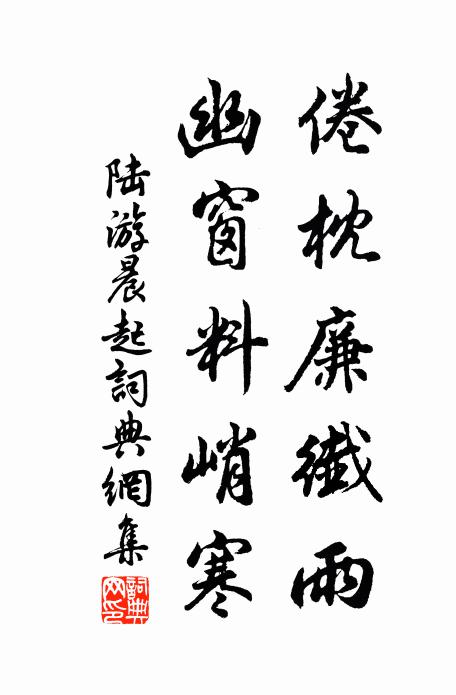 倦枕廉纖雨
幽窗料峭寒
陆游晨起詞典網集
詞典网印